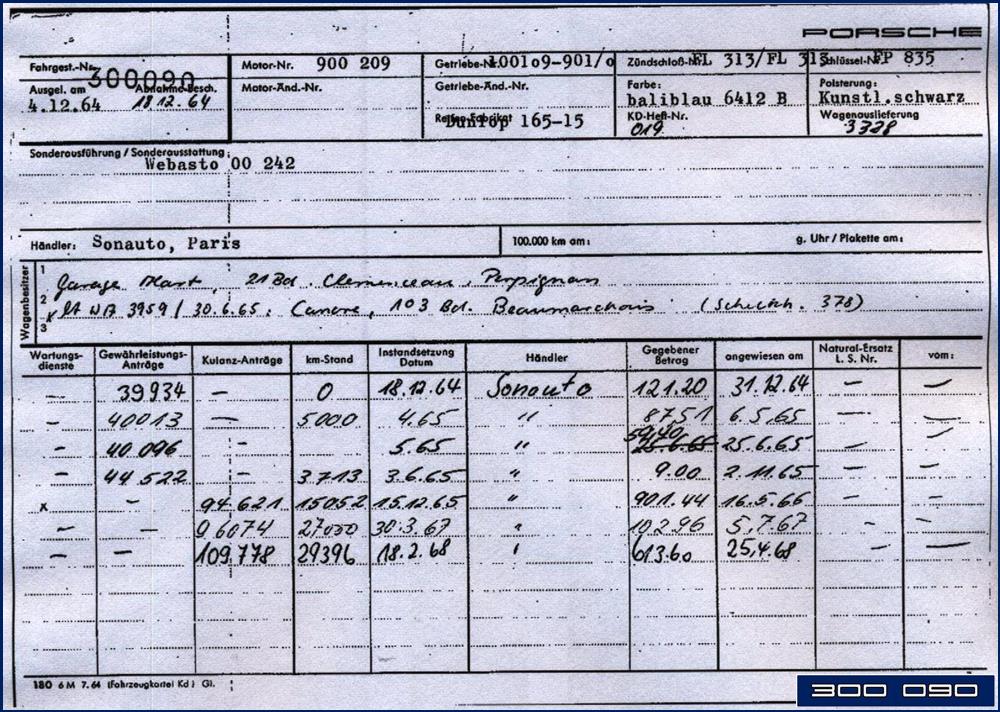 PORSCHE
Fahrgest.-Nr. 300090 Motor-Nr. 900 209 Getriebe-Nr. 100109-901/0 Zündschloß-Nr. FL 313/FL 313 Schlüssel-Nr. FP 835
Ausgel. am 4.12.64 Abnahme-Besch. 18 12. 64 Motor-Änd.-Nr. Getriebe-Änd.-Nr. Farbe: baliblau 6412 B Polsterung: Kunstl.schwarz
Reifen-Fabrikat Dunlop 165-15 KD-Heft-Nr. 019 Wagenauslieferung 3328
Sonderausführung / Sonderausstattung: Webasto 00 242
Händler: Sonauto, Paris 100.000 km am: g. Uhr / Plakette am:
Wagenbesitzer
1 Garage 21 Bd. Clemenceau, Perpignan
2 x lt WA 3959 / 30.6.65: 103 Bd. Beaumarchais 378)
3
Wartungsdienste Gewährleistungs-Anträge Kulanz-Anträge km-Stand Instandsetzung Datum Händler Gegebener Betrag angewiesen am Natural-Ersatz L. S. Nr. vom:
– 39934 – 0 18.12.64 Sonauto 121.20 31.12.64 – –
– 40013 – 5000 4.65 " 87.51 6.5.65 – –
– 40 096 – 5.65 " 59,40 25.6.65 25.6.65 – –
– 44 522 – 3713 3.6.65 " 9.00 2.11.65 – –
x – 94 621 15052 15.12.65 " 901.44 16.5.66 – –
– – 96074 27000 30.3.67 " 102.96 5.7.67 – –
– – 109.778 29396 18.2.68 " 613.60 25,4.68 – –
180 6 M 7. 64 (Fahrzeugkartei Kd) Gl.
300 090